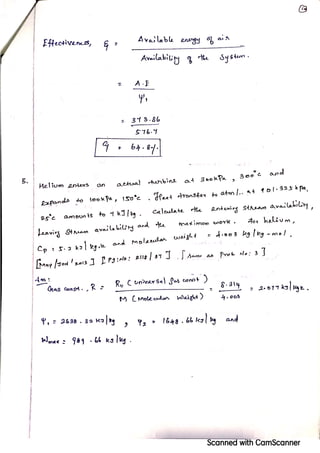 Effectiveness, ε = Available energy of air
Availability of the System.
= A.E
Ψ1
= 373.86
576.7
ε = 64.8%.
5. Helium enters an actual turbine at 300kPa, 300°c and
expands to 100kPa, 150°c. Heat transfer to atm/.. at 101.325 kPa,
25°c amounts to 7 kJ/kg. Calculate the entering stream availability,
leaving stream availability and the maximum work. for helium,
Cp = 5.2 kJ/kg.k and Molecular weight = 4.003 kg/kg-mol.
Ans:
Gas const., R = Ru (Universal gas const) = 8.314 = 2.077 kJ/kgk.
M (Molecular weight) 4.003
kJ/kg and
kJ/kg.
Scanned with CamScanner